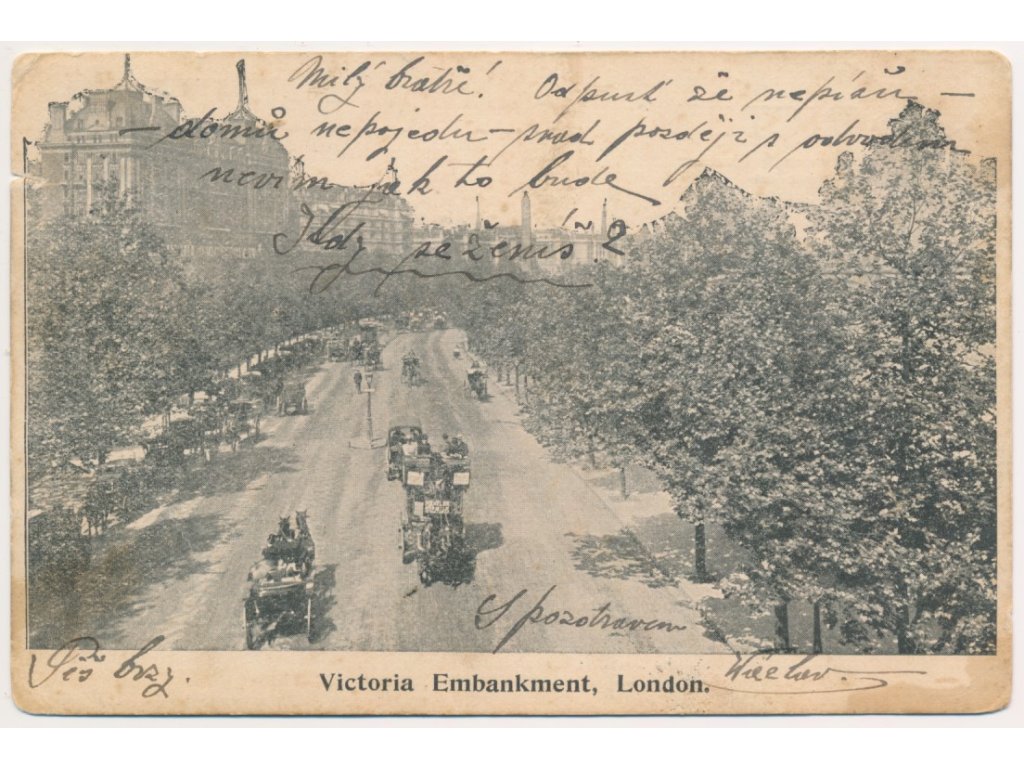 Milý bratře! Odpusť že nepíšu –
– domů nepojedu – snad později s odvodem
nevím jak to bude
Kdy se ženíš?
S pozdravem
Piš brzy.
Victoria Embankment, London.
Václav